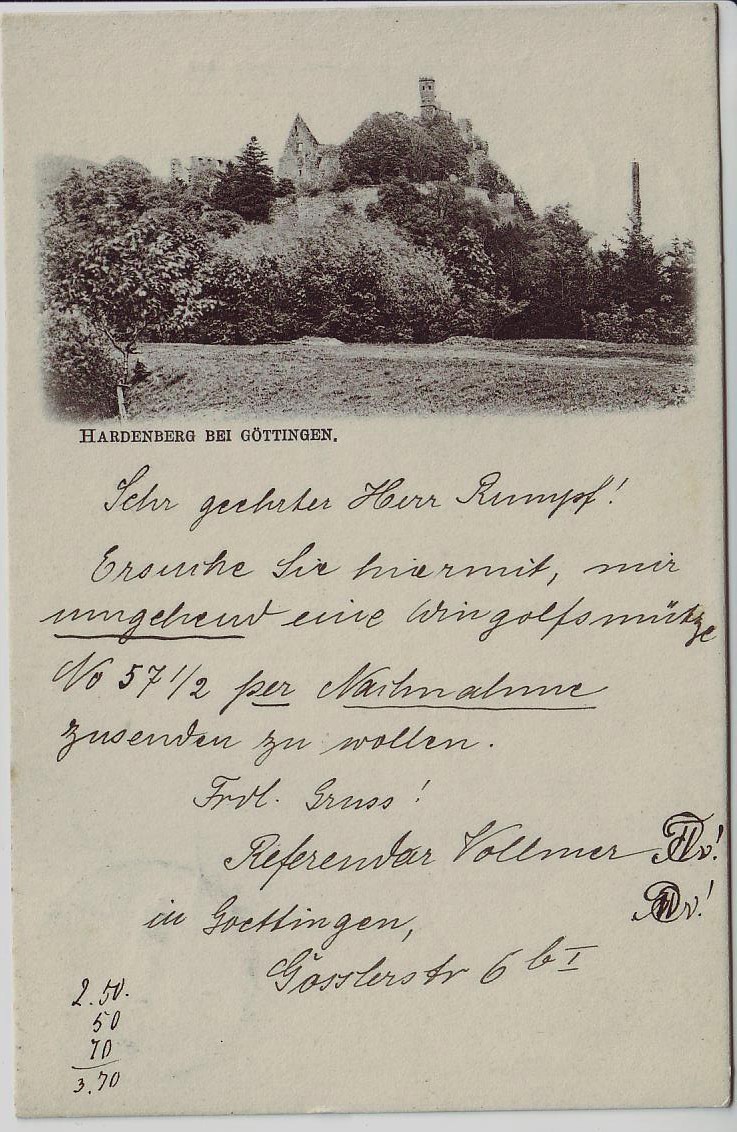 HARDENBERG BEI GÖTTINGEN.
Sehr geehrter Herr Rumpf!
Ersuche Sie hiermit, mir
umgehend eine Wingolfsmütze
No 57 1/2 per Nachnahme
zusenden zu wollen.
Frdl. Gruss!
Referendar Vollmer
in Goettingen,
Gosslerstr 6 b I
2.50.
50
70
3.70